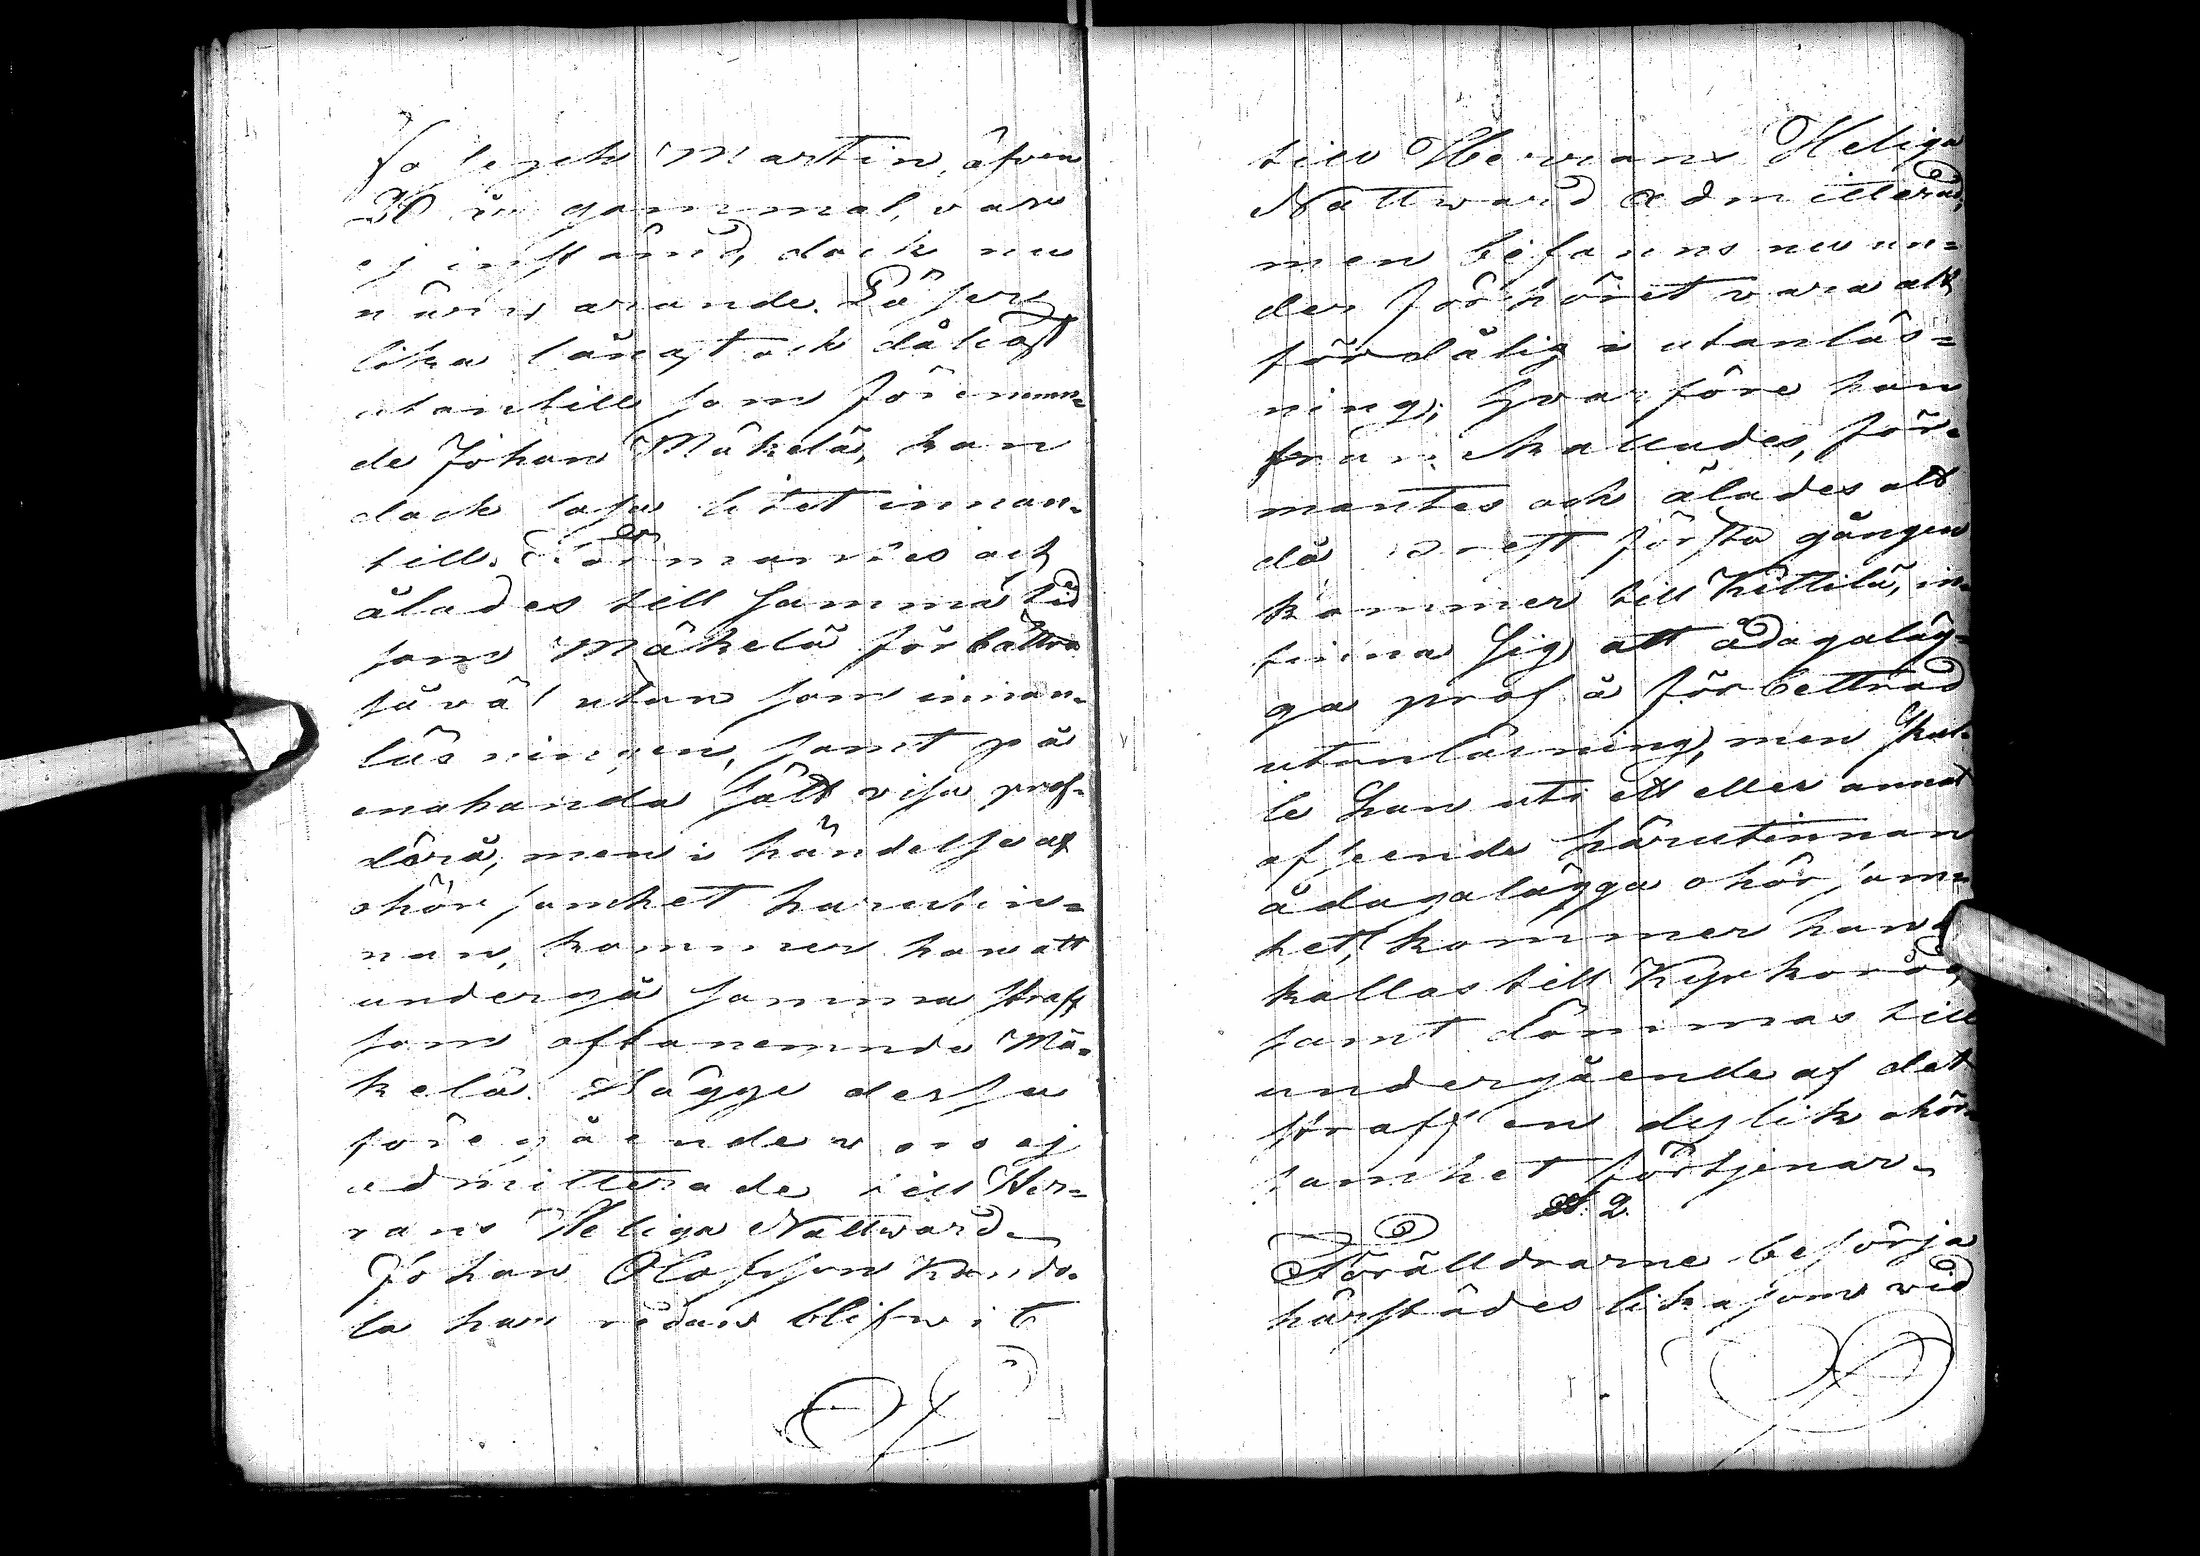 Joseph Martin, äfven
20 år gammal, var
ej instämd, dock nu
närvarande. Läser
lika långt och dåligt
utantill som förenämn-
de Johan Mäkelä, kan
dock läsa litet innan-
till. Förmantes och
ålades till samma tid
som Mäkelä förbättra
såväl utan som innan-
läsningen, samt på
enahanda sätt visa prof-
dera, men i händelse af
ohörsamhet härutin-
nan, kommer han att
undergå samma straff
som oftanemnde Mä-
kelä. Bägge dessa
föregående voro ej
admitterade till Her-
rans Heliga Nattward.
Johan Olofsson
la har redan blifwit
till Herrans Heliga
Nattward admitterad,
men befanns nu un-
der förhöret vara allt
för dålig i utanläs-
ning; hvarföre han
framkallades, för-
mantes och ålades att
då Prest första gången
kommer till Kittilä, in-
finna sig att ådagaläg-
ga prof å förbettrad
utanläsning, men skul-
le han uti ett eller annat
afseende härutinnan
ådagalägga ohörsam-
het, kommer han
kallas till Kyrkoråd,
samt dömmas till
undergående af det
straff en dylik ohör-
samhet förtjenar.
§. 2.
Föräldrarne besörja
härstädes lika som vid